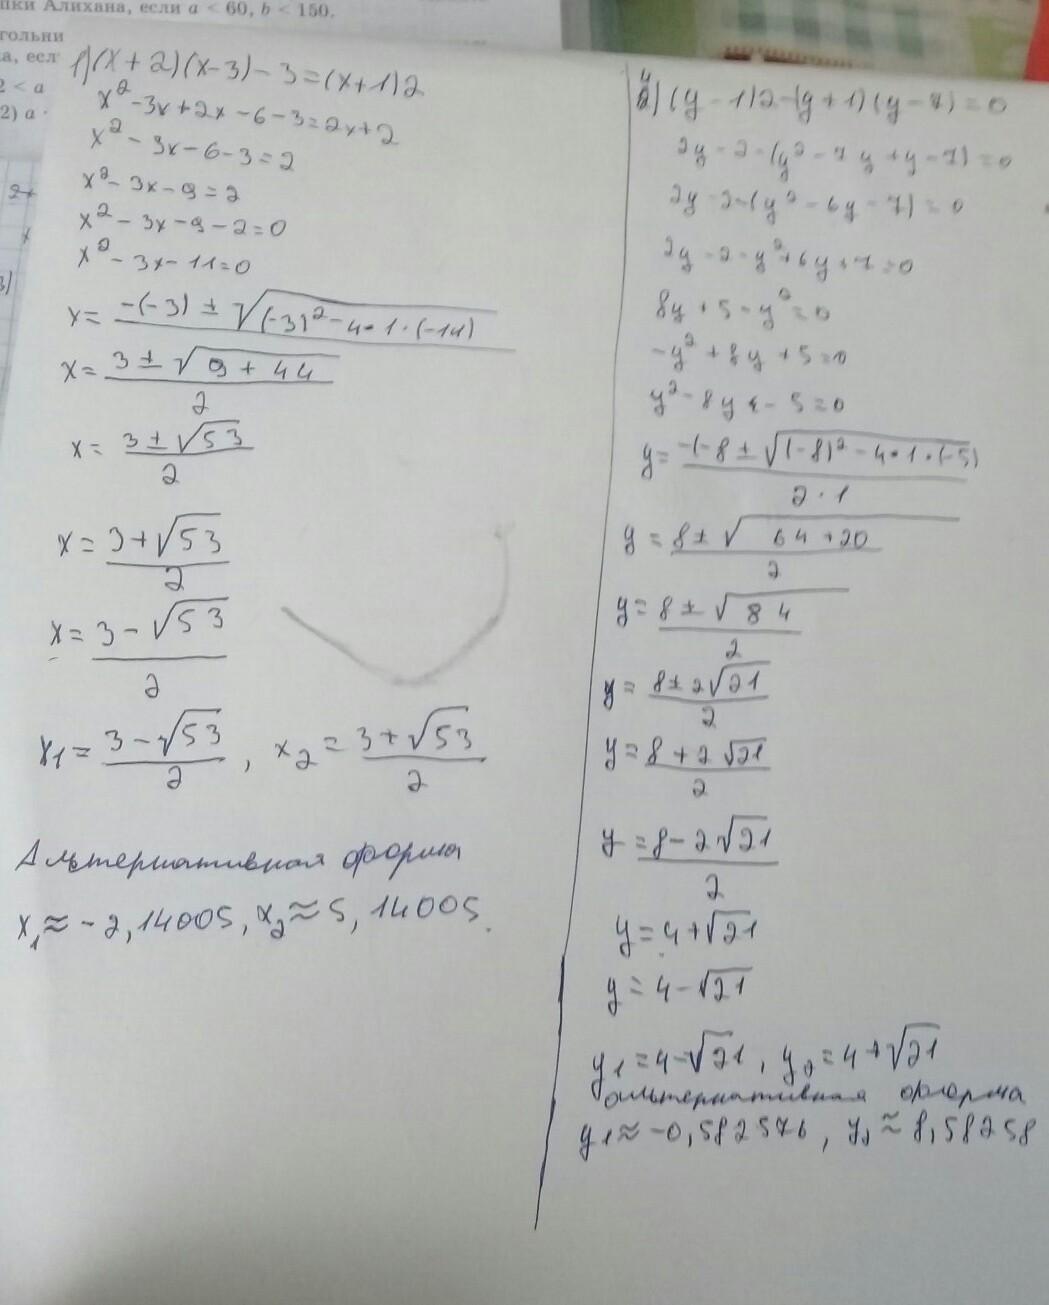 пки Алихана, если a < 60, b < 150.
гольни
а, есл
2 < a
2) a ·
2x
x
3)
1)(x+2)(x-3)-3=(x+1)2
x²-3x+2x-6-3=2x+2
x²-3x-6-3=2
x²-3x-9=2
x²-3x-9-2=0
x²-3x-11=0
x= -(-3) ± √(-3)²-4·1·(-11)
x= 3 ± √9+44 / 2
x= 3 ± √53 / 2
x= 3+√53 / 2
x= 3-√53 / 2
x1= 3-√53 / 2 , x2= 3+√53 / 2
Альтернативная форма
x1≈-2,14005, x2≈5,14005.
4) (y-1)2-(y+1)(y-7)=0
2y-2-(y²-7y+y-7)=0
2y-2-(y²-6y-7)=0
2y-2-y²+6y+7=0
8y+5-y²=0
-y²+8y+5=0
y²-8y-5=0
y= -(-8 ± √(-8)²-4·1·(-5) / 2·1
y= 8 ± √64+20 / 2
y= 8 ± √84 / 2
y= 8 ± 2√21 / 2
y= 8+2√21 / 2
y= 8-2√21 / 2
y=4+√21
y=4-√21
y1=4-√21, y2=4+√21
альтернативная форма
y1≈-0,582576, y2≈8,58258